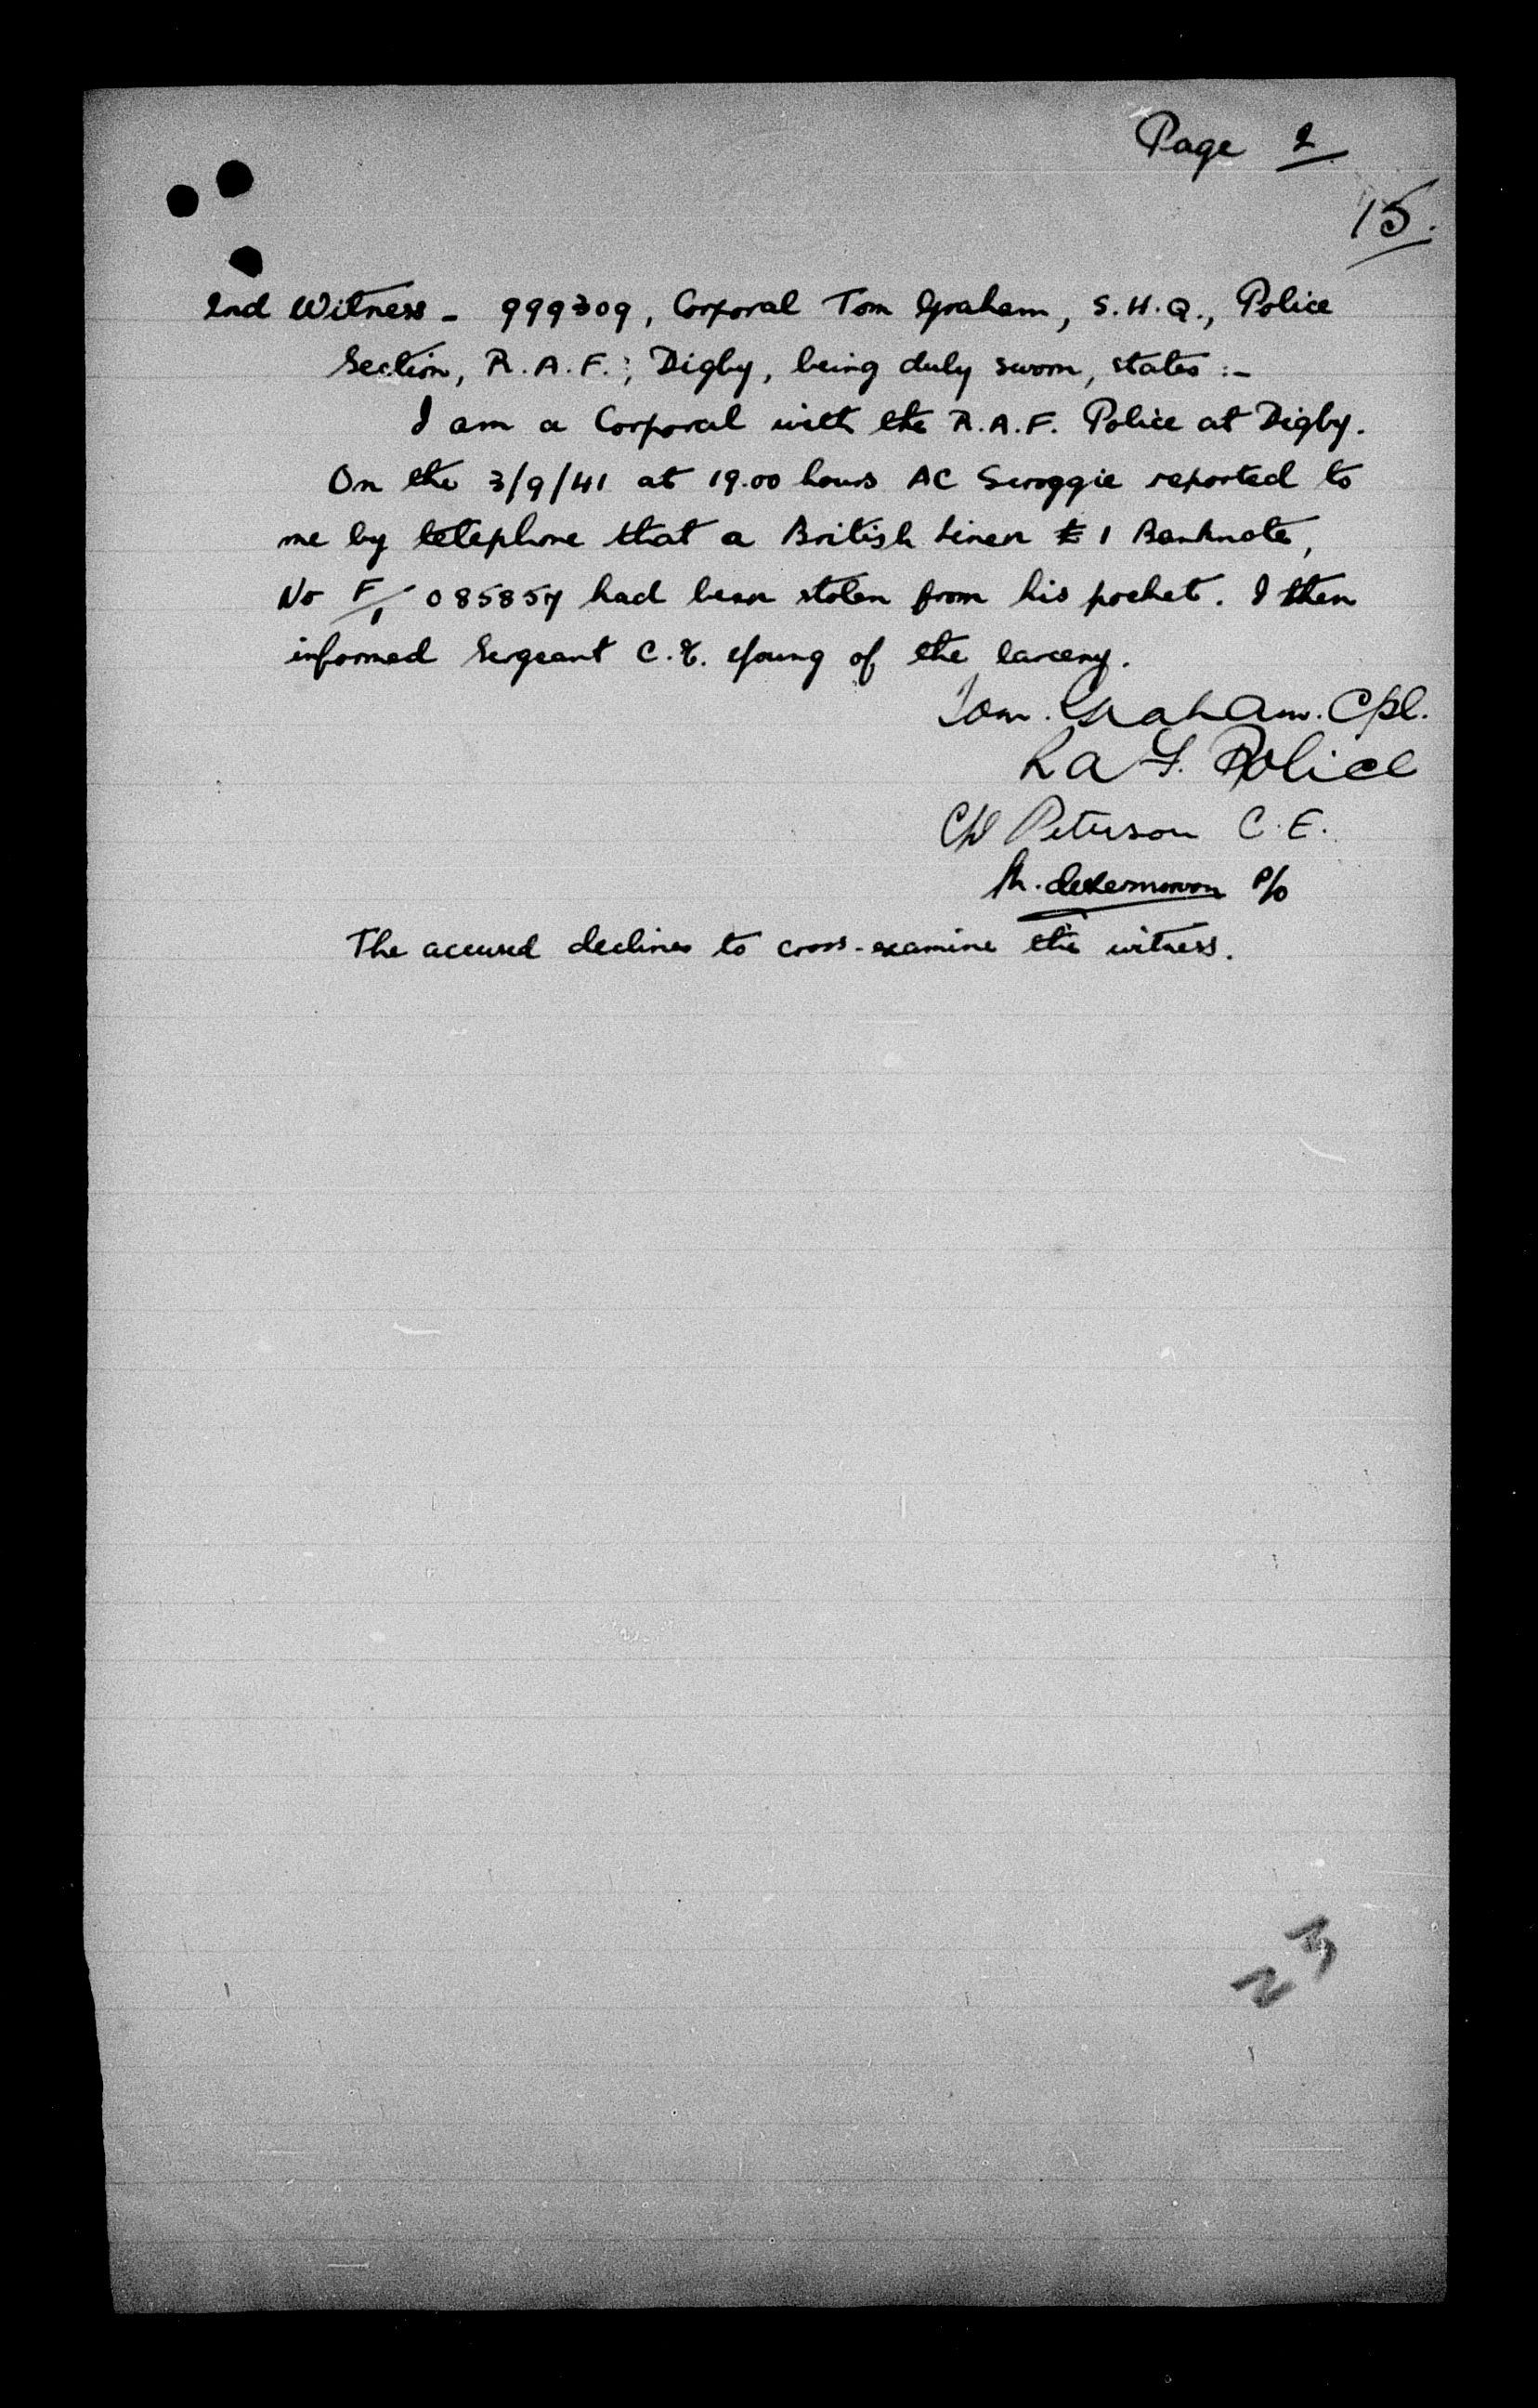 Page 2
15.
2nd Witness - 999309, Corporal Tom Graham, S.H.Q., Police
Section, R.A.F., Digby, being duly sworn, states :-
I am a Corporal with the R.A.F. Police at Digby.
On the 3/9/41 at 19.00 hours AC Scroggie reported to
me by telephone that a British Linen £1 Banknote,
No F/1 085857 had been stolen from his pocket. I then
informed Sergeant C. Young of the larceny.
Tom. Graham. Cpl.
R a F. Police
Peterson C.E.
P/O
The accused declines to cross-examine this witness.
23